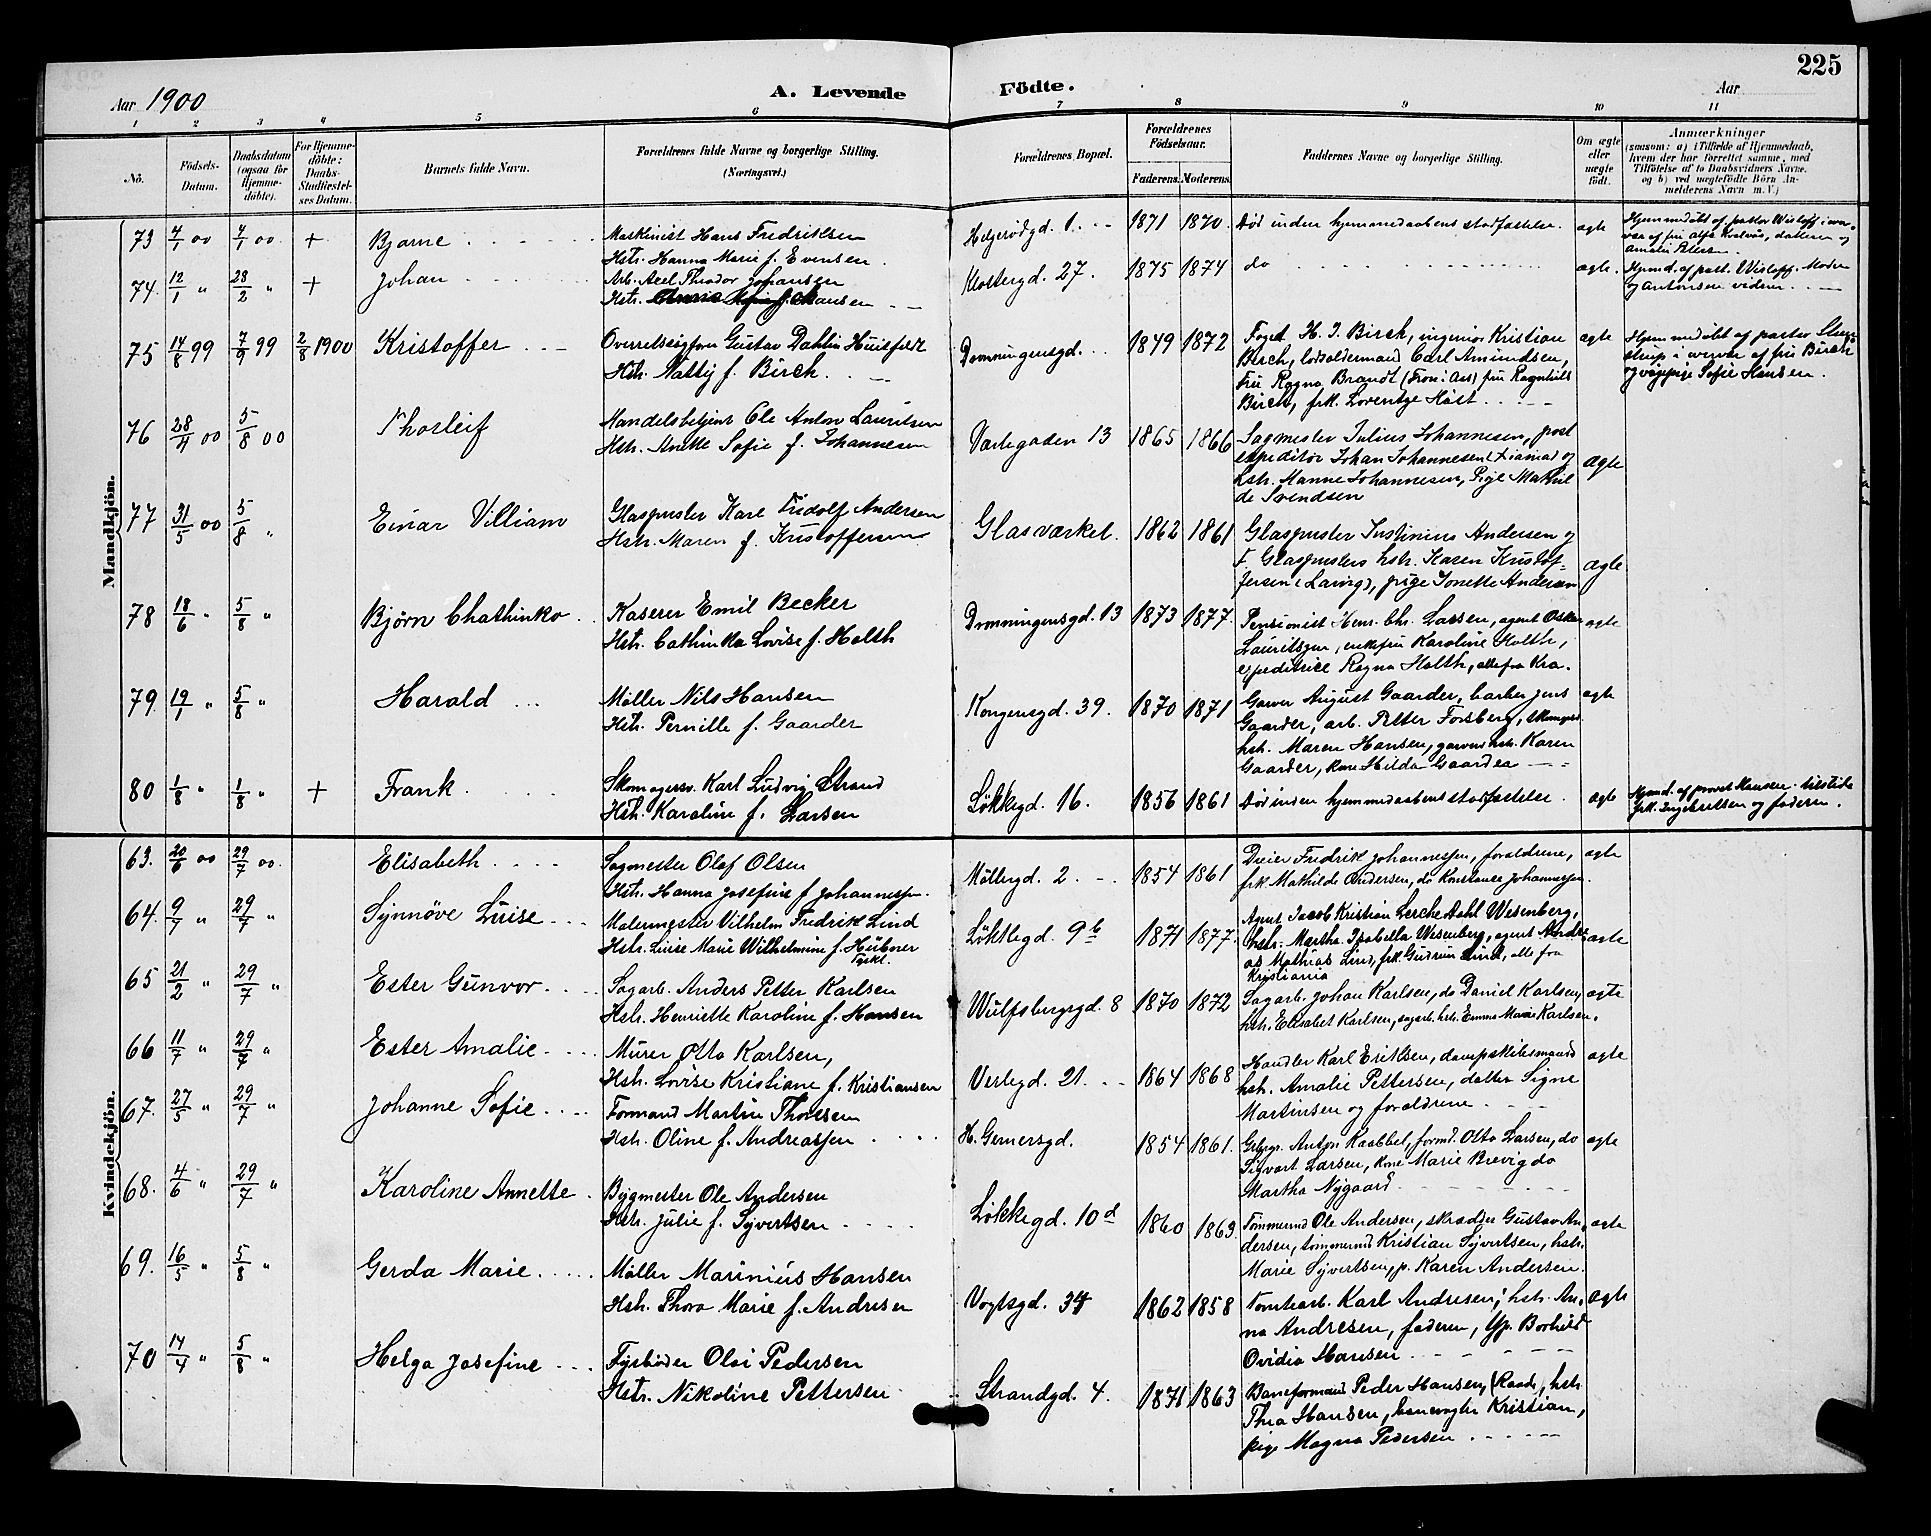 225
Aar 1900
A. Levende Födte.
Aar
1 2 3 4 5 6 7 8 9 10 11
No.
Födsels-Datum.
Daabsdatum (ogsaa for Hjemme-döbte).
For Hjemme-döbte: Daabs-Stadfæstel-ses Datum.
Barnets fulde Navn.
Forældrenes fulde Navne og borgerlige Stilling. (Næringsvei.)
Forældrenes Bopæl.
Forældrenes Födselsaar.
Faderens. Moderens.
Faddernes Navne og borgerlige Stilling.
Om ægte eller uægte födt.
Anmærkninger
(saasom: a) i Tilfælde af Hjemmedaab,
hvem der har forrettet samme, med
Tilföielse af to Daabsvidners Navne.
og b) ved uægtefödte Börn An-
melderens Navn m. V.)
Mandkjön.
73 4/1 00 4/1 00. + Bjarne
Maskinist Hans Fredriksen
Hstr. Hanna Marie f. Evensen
Helgerödgd. 1. 1871 1870. Död inden hjemmedaabens stadfæstelse. ægte
Hjemmedöbt af pastor Wisløff
74. 12/1 " 28/2 " + Johan
Arb. Axel Theodor Johansen
Hstr. f. Hansen
Klostergd. 27. 1875 1874 do ægte.
Hjmd. af past. Wisløff. Moder
og Antonsen vidner.
75 14/8 99 7/9 99 2/8 1900 Kristoffer
Overretssagförer Gustav Dahlin Huitfeldt
Hstr. Natty f. Birch.
Dronningensgd. 1849 1872
Foged H. J. Birch, ingeniør Kristian
Birch, lodsoldermand Carl Amundsen,
Fru Ragna Brandt (Fron: Aas) fru Ragnhild
Birch, frk. Lorentze Høst
ægte
Hjemmedöbt af pastor
fru Birch
og Sofie Hansen.
76 28/4 00 5/8 00 Thorleif
Handelsbetjent Ole Anton Lauritsen
Hstr. Anette Sofie f. Johannesen
Varlegaden 13 1865 1866
Sagmester Julius Johannesen, post
expeditör Johan Johannesen (Xiania) og
hstr. Hanne Johannesen, Pige Mathil
de Svendsen
ægte
77 31/5 00 5/8 " Einar Villiam
Glaspuster Karl Fridolf Andersen
Hstr. Maren f. Kristoffersen
Glasværket. 1862 1861
Glaspuster Justinius Andersen og
F. Glaspusters hstr. Karen Kristof-
fersen (Larvig), pige Jonette Andersen
ægte
78 18/6 " 5/8 " Björn Chathinko
Kaserer Emil Becker
Hstr. Cathinka Lovise f. Holth
Dronningensgd. 13 1873 1877.
Pensionist Henr. Chr. Larsen, agent Oskar
Lauritzen, enkefru Karoline Holth,
expeditrice Ragna Holth, alle fra Kra.
ægte
79. 19/1 " 5/8 " Harald
Møller Nils Hansen
Hstr. Pernille f. Gaarder
Kongensgd. 39. 1870 1871
Garver August Gaarder, barber Jens
Gaarder, arb. Petter Forsberg,
hstr. Maren Hansen, garvers hstr. Karen
Gaarder, Hilda Gaarder
ægte
80 1/8 " 1/8 " + Frank
Skomagersv. Karl Ludvig Strand
Hstr. Karoline f. Larsen
Løkkegd. 16. 1856 1861 Död inden hjemmedaabens stadfæstelse. ægte
Hjmd. af provst Hansen.
frk. Ingebretsen og faderen.
Kvindekjön.
63. 20/6 00 29/7 00. Elisabeth
Sagmester Olaf Olsen
Hstr. Hanna Josefine f. Johannessen
Møllergd. 2. 1854 1861
Dreier Fredrik Johannessen, forældrene,
frk. Mathilde Andersen, do Konstance Johannessen.
ægte
64. 9/7 " 29/7 " Synnöve Luise
Malermester Vilhelm Fredrik Lind
Hstr. Luise Marie Wilhelmine f. Hübner
Løkkegd. 9b 1871 1877.
Agent Jacob Kristian Lerche Dahl Wesenberg,
hstr. Martha Isabella Wesenberg, agent Andre
as Mathias Lind, frk. Gudrun Lind, alle fra
Kristiania
ægte
65 21/2 " 29/7 " Ester Gunvor
Sagarb. Anders Petter Karlsen
Hstr. Henriette Karoline f. Hansen
Wulfsbergsgd. 8 1870 1872
Sagarb. Johan Karlsen, do Daniel Karlsen,
hstr. Elisabet Karlsen, sagarb. hstr. Emma Marie Karlsen.
ægte
66 11/7 " 29/7 " Ester Amalie
Murer Otto Karlsen,
Hstr. Lovise Kristiane f. Kristiansen
Verlegd. 21. 1864 1868
Handler Karl Eriksen,
hstr. Amalie Pettersen, datter Signe
Martinsen og forældrene
ægte
67. 27/5 " 29/7 " Johanne Sofie
Formand Martin Thorsen
Hstr. Oline f. Andreassen
H. Gernersgd. 1854 1861.
Anton Kaabbel, formd. Otto Larsen, do
Sigvart Larsen, kone Marie Brevig do
Martha Nygaard
ægte
68. 4/6 " 29/7 " Karoline Annette
Bygmester Ole Andersen
Hstr. Julie f. Syvertsen
Løkkegd. 10d 1860 1863.
Tømmermd Ole Andersen, skrædder Gustav An-
dersen, tømmermd Kristian Syvertsen, hstr.
Marie Syvertsen, p. Karen Andersen.
ægte
69. 16/5 " 5/8 " Gerda Marie
Møller Marinius Hansen
Hstr. Thora Marie f. Andresen
Vogtsgd. 34 1862 1858
Tomtearb. Karl Andresen, hstr. An-
na Andresen, faderen, Borhild
Ovidia Hansen
ægte
70 14/4 " 5/8 " Helga Josefine
Fyrbøder Olai Pedersen
Hstr. Nikoline Pettersen
Strandgd. 4. 1871 1863
Baneformand Peder Hansen, (Raade), hstr.
Thea Hansen, banevogter Kristian,
pige Magna Pedersen